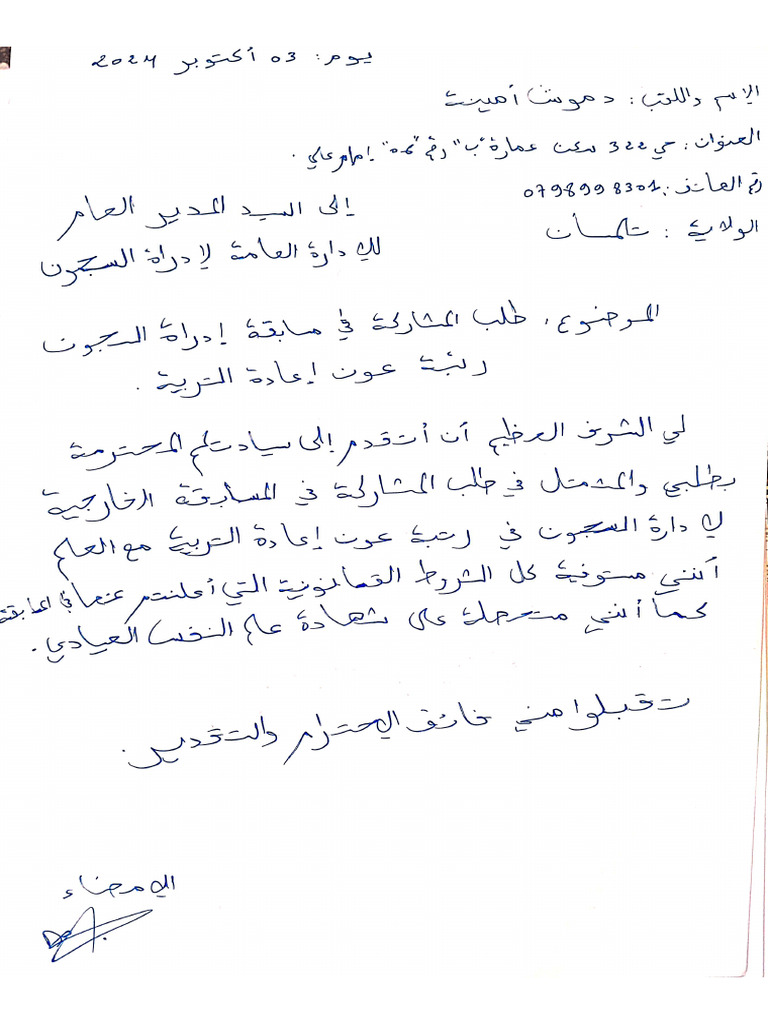 يوم: 03 أكتوبر 2024
الإسم واللقب: دموش أمينة
العنوان: حي 322 سكن عمارة "ب" رقم إمام علي.
رقم الهاتف: 0798998301
الولاية: تلمسان
إلى السيد المدير العام
للإدارة العامة لإدراة السجون
الموضوع: طلب المشاركة في مسابقة إدراة السجون
رتبة عون إعادة التربية.
لي الشرف العظيم أن أتقدم إلى سيادتكم المحترمة
بطلبي والمتمثل في طلب المشاركة في المسابقة الخارجية
لإدارة السجون في رتبة عون إعادة التربية مع العلم
أنني مستوفية كل الشروط القانونية التي أعلنتم عنها في المسابقة
كما أنني متحصلة على شهادة علم النفس العيادي.
تقبلوا مني فائق الإحترام والتقدير.
الإمضاء